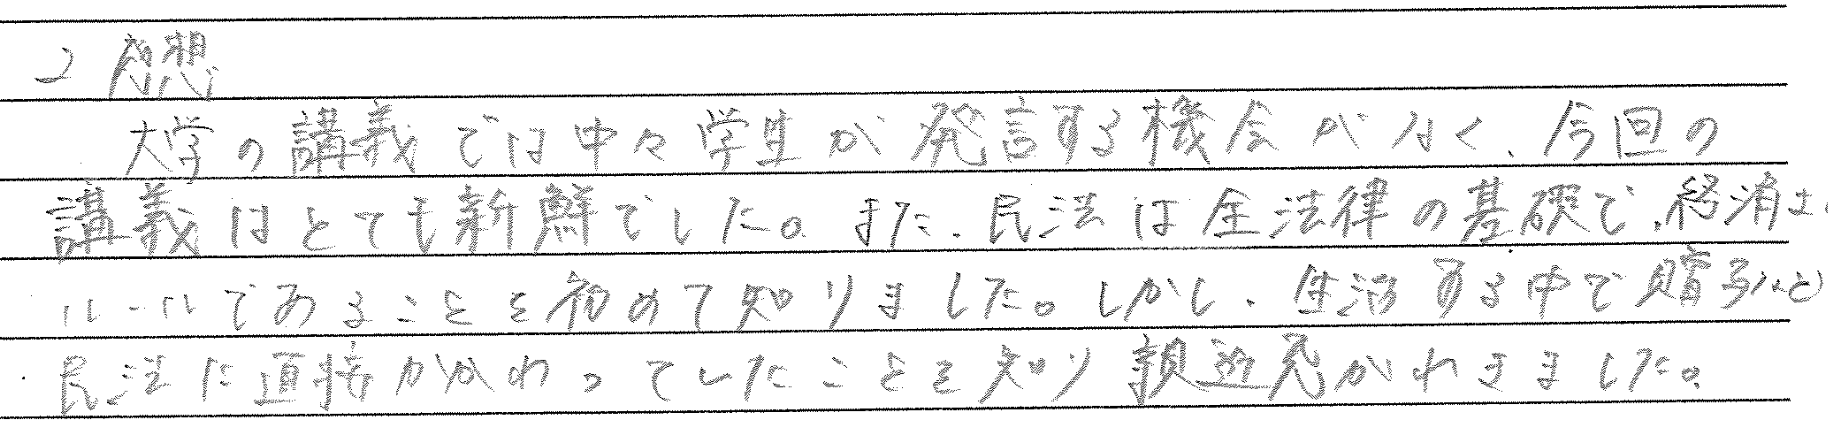 2 感想
大学の講義では中々学生が発言する機会がなく、今回の
講義はとても新鮮でした。また、民法は全法律の基礎で、経済
ルールであることを初めて知りました。しかし、生活する中で贈与など
民法に直接かかわっていたことを知り親近感がわきました。